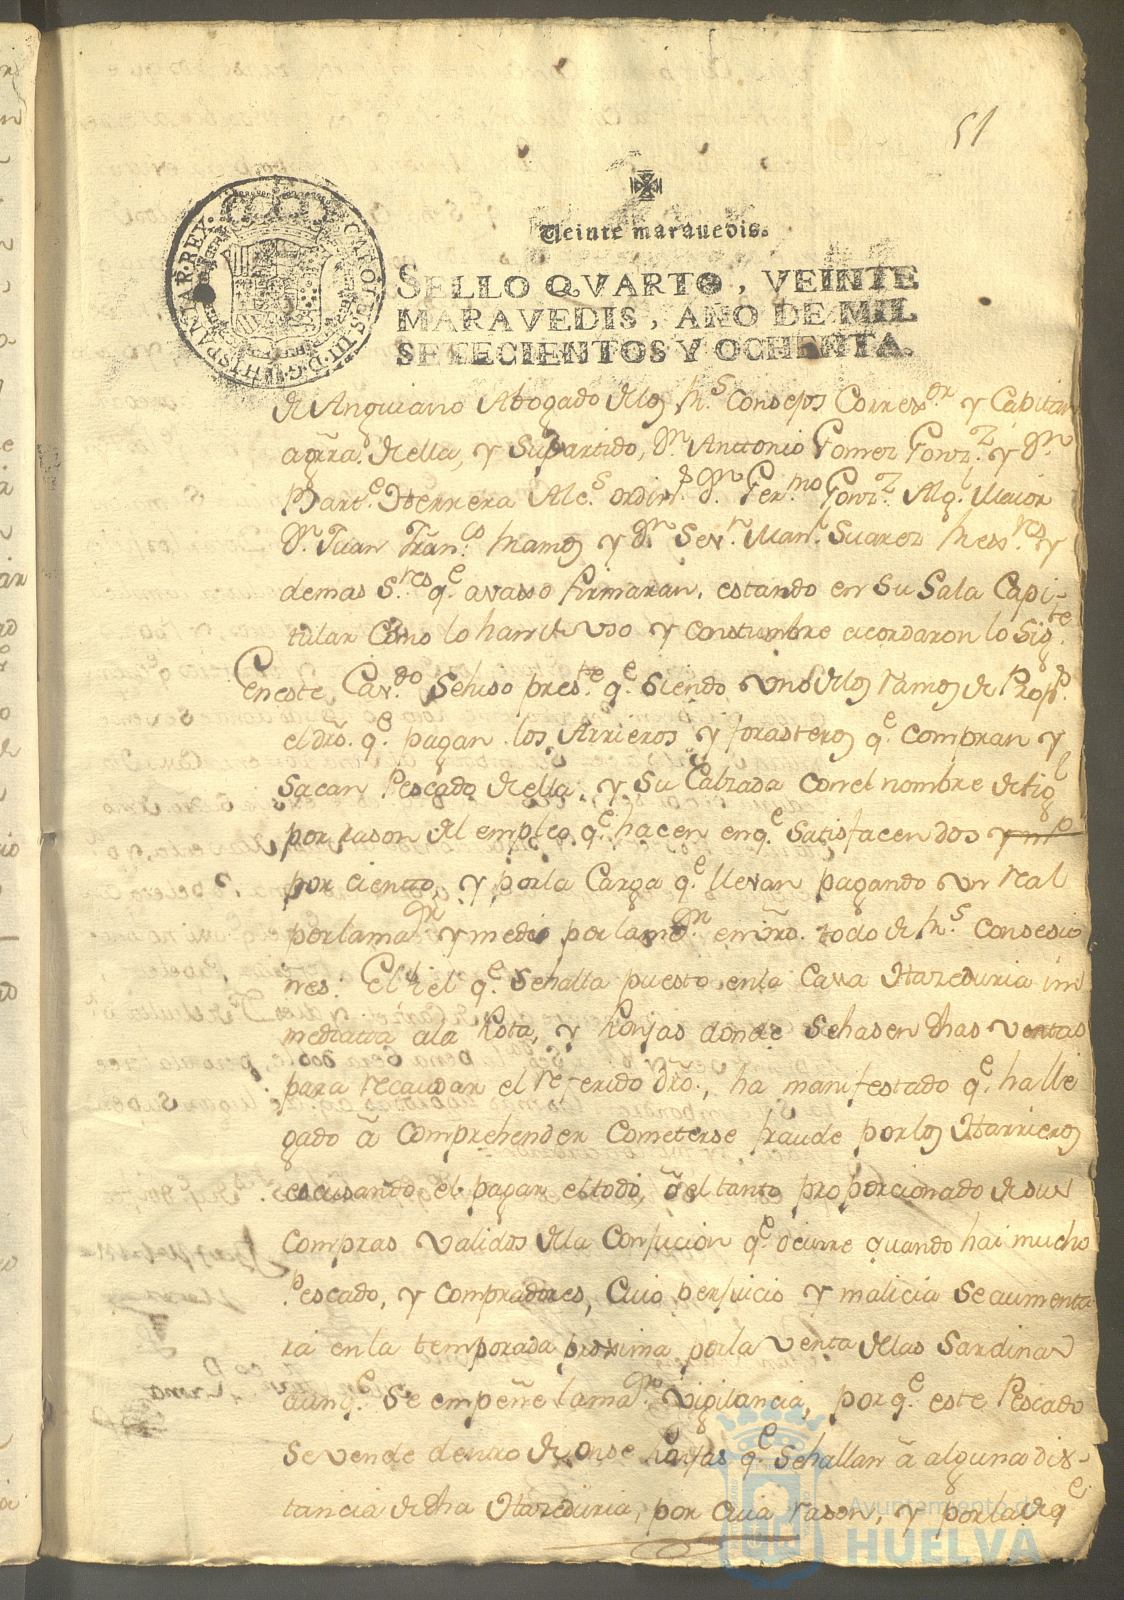 51
Veinte maravedis.
SELLO QVARTO, VEINTE
MARAVEDIS, AÑO DE MIL
SETECIENTOS Y OCHENTA.
CAROLUS III D.G. HISPANIAR. REX.
de Anguiano Abogado delos Rs. Consejos Correxor. y Capitan
aGrra. de ella, y Supartido, Dn. Anttonio Gomez Gonz. y Dn.
Barte. Herrera Alcs. ordins. Dn. Germo. Gonz. Alg. Maior
Dn. Juan Franco. Ramos y Dn. Sevn. Mann. Suarez Rexres. y
demas Sres. qe. avaxo firmaran, estando en Su Sala Capi-
tular Como lo han de vso y Constumbre acordaron lo Sigte.
En este Cavdo. Sehiso preste. qe. Siendo vno delos ramos de Props.
el dro. qe. pagan los Arrieros y forasteros qe. compran y
sacan Pescado de ella, y Su Calzada con el nombre de
por rason del empleo qe. hacen en qe. Satisfacen dos y mo.
por ciento, y porla Carga qe. llevan pagando vn real
porlamaor. y medio por lamenor. todo de Rs. Consesio
nes: El fiel qe. Sehalla puesto enla Casa Hazeduria in
mediatta ala Rota, y Ronjas donde Sehasen dhas ventas
para recaudar el referido dro., ha manifestado qe. halle
gado â comprehender Cometerse fraude porlos Harrieros
escusando el pagar eltodo, ô eltanto proporcionado desus
compras validos dela Confucion qe. ocurre quando hai mucho
Pescado, y compradores, Cuio perjuicio y malicia Seaumenta
rà enla temporada proxima porla venta delas Sardinas
aunqe. Se empeñe lamaor. vigilancia, por qe. este Pescado
Se vende dentro de onse Ronjas qe. Sehallan â alguna dis-
tancia de dha Hazeduria, por Cuia rason, y porla de qe.
Ayuntamiento de
HUELVA